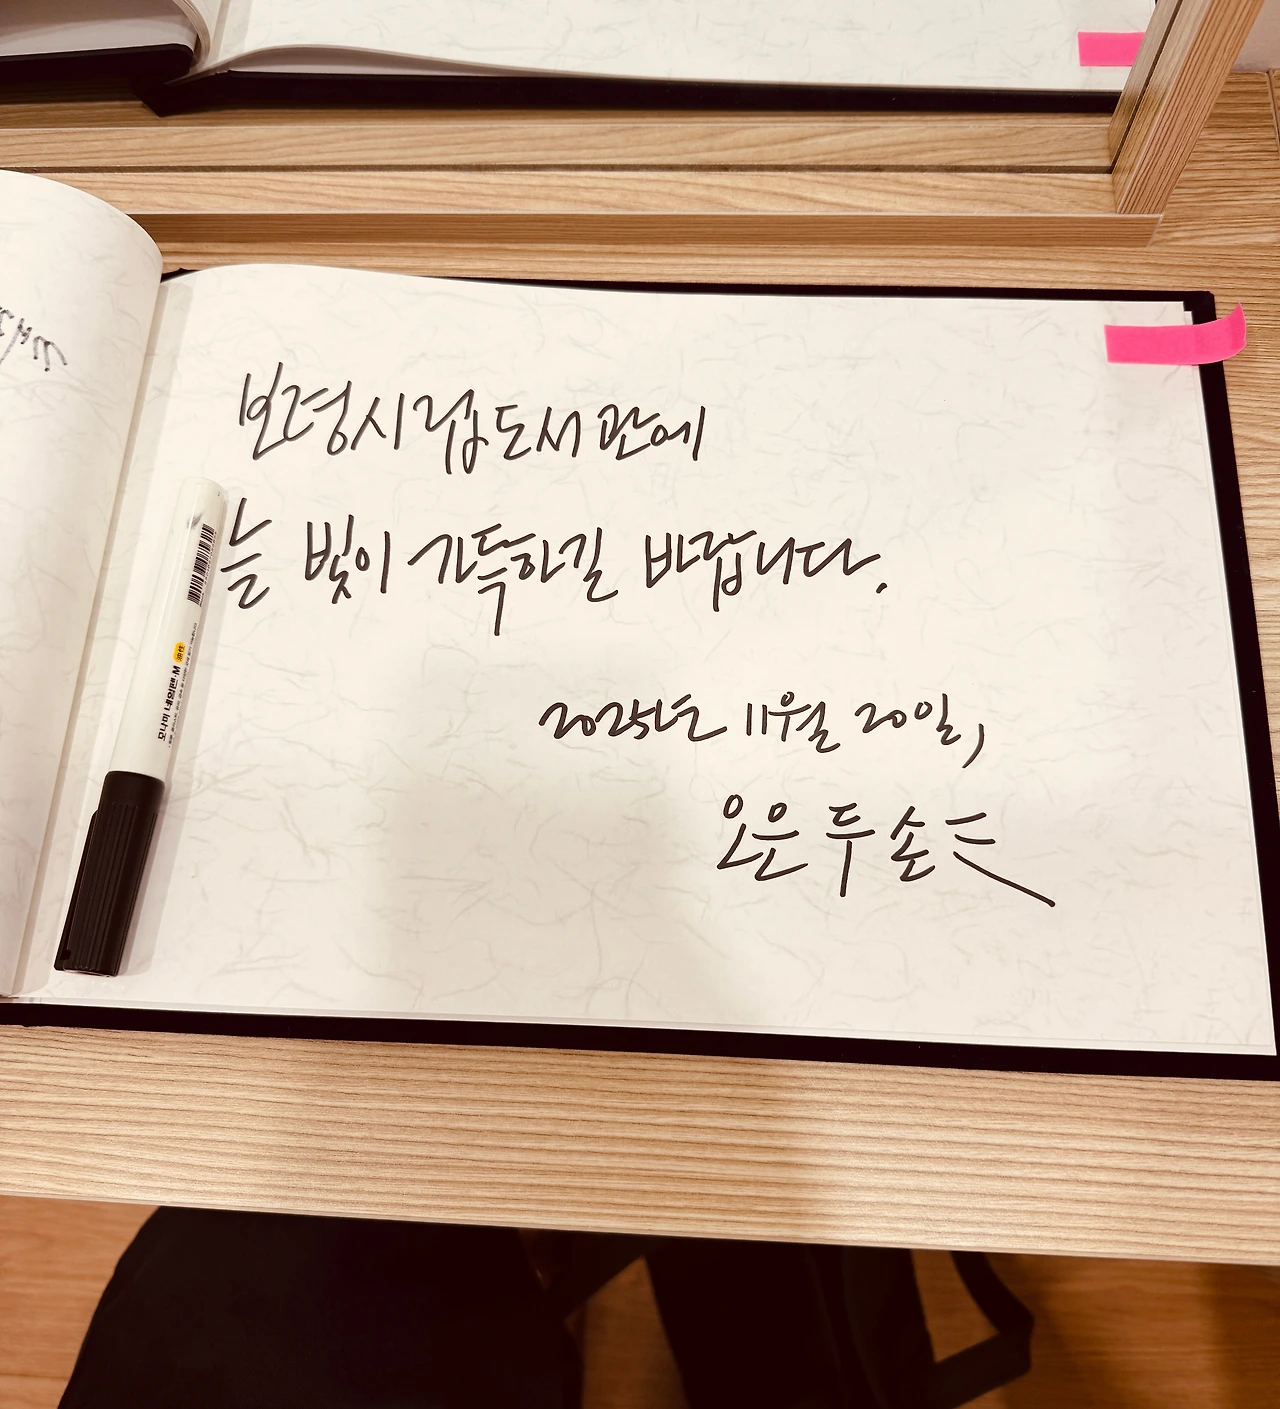 보령시립도서관에
늘 빛이 가득하길 바랍니다.
2025년 11월 20일,
오은 두손 드림
모나미 네임펜·M